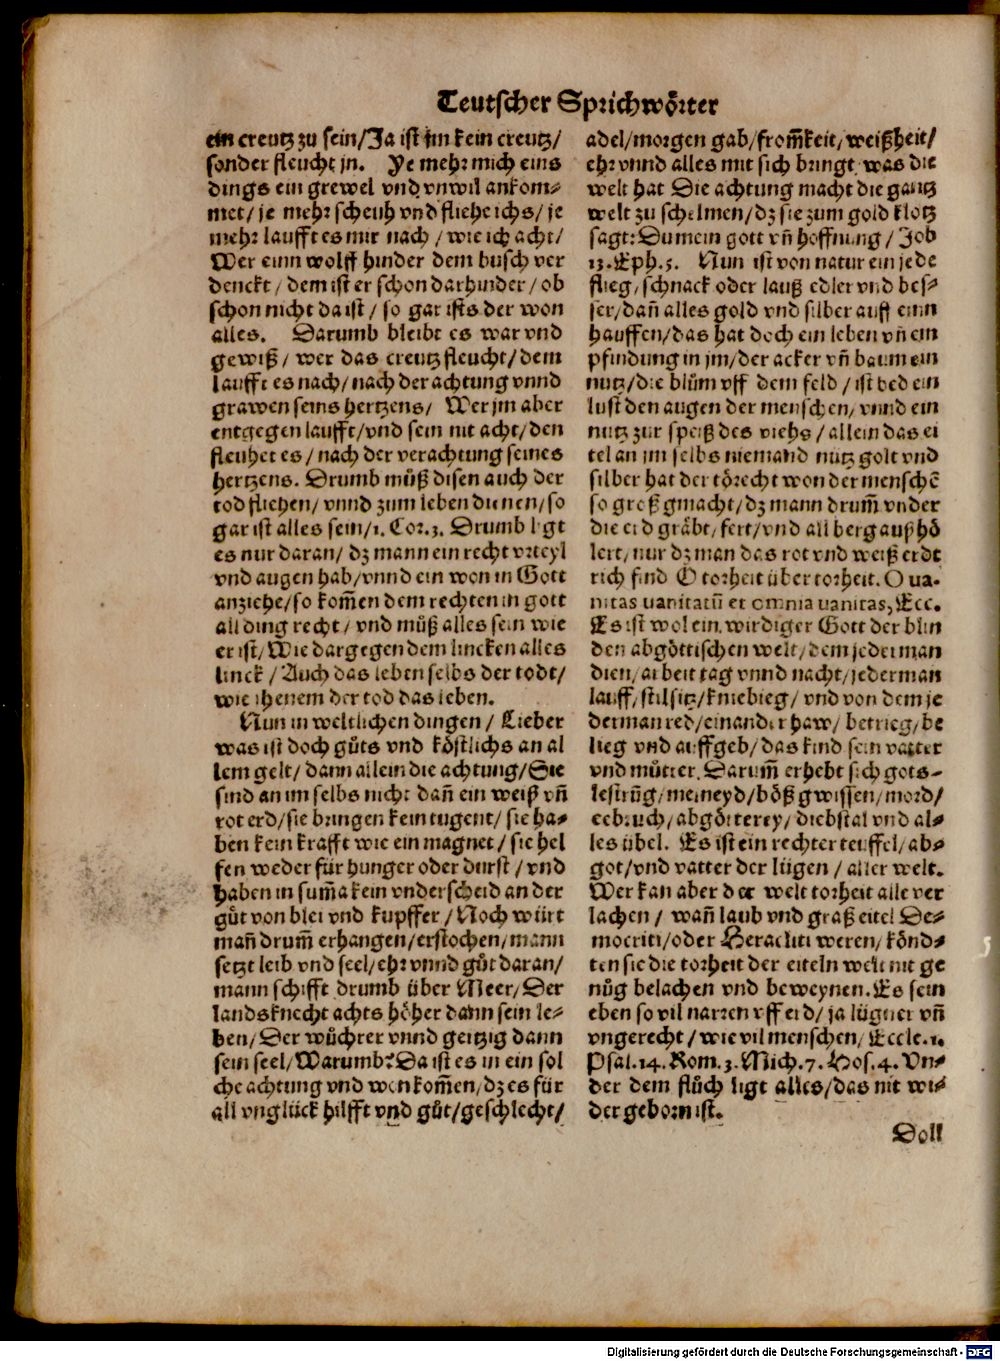 Teutscher Sprichwörter
ein creutz zu sein/Ja ist jm kein creutz/
sonder fleucht jn. Ye mehr mich eins
dings ein grewel vnd vnwil ankom-
met/je mehr scheuh vnd fliehe ichs/je
mehr laufft es mir nach/wie ich acht/
Wer einn wolff hinder dem busch ver
denckt/dem ist er schon darhinder/ob
schon nicht da ist/so gar ists der won
alles. Darumb bleibt es war vnd
gewiß/wer das creutz fleucht/dem
laufft es nach/nach der achtung vnnd
grawen seins hertzens/Wer jm aber
entgegen laufft/vnd sein nit acht/den
fleuhet es/nach der verachtung seines
hertzens. Drumb müß disen auch der
tod fliehen/vnnd zum leben dienen/so
gar ist alles sein/1. Cor.3. Drumb ligt
es nur daran/dz mann ein recht vrteyl
vnd augen hab/vnnd ein won in Gott
anziehe/so kom̃en dem rechten in gott
all ding recht/vnd müß alles sein wie
er ist/Wie dargegen dem lincken alles
linck/Auch das leben selbs der todt/
wie jhenem der tod das leben.
Nun in weltlichen dingen/Lieber
was ist doch gůts vnd köstlichs an al
lem gelt/dann allein die achtung/Sie
sind an im selbs nicht dañ ein weiß vñ
rot erd/sie bringen kein tugent/sie ha-
ben kein krafft wie ein magnet/sie hel
fen weder für hunger oder durst/vnd
haben in sum̃a kein vnderscheid an der
gůt von blei vnd kupffer/Noch würt
mañ drum̃ erhangen/erstochen/mann
setzt leib vnd seel/ehr vnnd gůt daran/
mann schifft drumb über Meer/Der
landsknecht achts höher dann sein le-
ben/Der wůchrer vnnd geitzig dann
sein seel/Warumb? Da ist es in ein sol
che achtung vnd won kom̃en/dz es für
all vnglück hilfft vnd gůt/geschlecht/
adel/morgen gab/from̃keit/weißheit/
ehr vnnd alles mit sich bringt was die
welt hat Die achtung macht die gantz
welt zu schelmen/dz sie zum gold klotz
sagt: Du mein gott vñ hoffnung/Job
13. Eph.5. Nun ist von natur ein jede
flieg/schnack oder lauß edler vnd bes-
ser/dañ alles gold vnd silber auff einn
hauffen/das hat doch ein leben vñ em
pfindung in jm/der acker vñ baum ein
nutz/die blům vff dem feld/ist bed ein
lust den augen der menschen/vnnd ein
nutz zur speiß des viehs/allein das ei
tel an jm selbs niemand nutz golt vnd
silber hat der törecht won der menschẽ
so groß gmacht/dz mann drum̃ vnder
die erd gräbt/fert/vnd all berg außhö
lert/nur dz man das rot vnd weiß erdt
rich find O torheit über torheit. O ua-
nitas uanitatũ et omnia uanitas, Ecc.
Es ist wol ein wirdiger Gott der blin
den abgöttischen welt/dem jederman
dien/arbeit tag vnnd nacht/jederman
lauff/stilsitz/kniebieg/vnd von dem je
derman red/einander haw/betrieg/be
lieg vnd auffgeb/das kind sein vatter
vnd můtter. Darum̃ erhebt sich gots-
lestrũg/meineyd/böß gwissen/mord/
eebruch/abgötterey/diebstal vnd al-
les übel. Es ist ein rechter teuffel/ab-
got/vnd vatter der lügen/aller welt.
Wer kan aber der welt torheit alle ver
lachen/wañ laub vnd graß eitel De-
mocriti/oder Heracliti weren/könd-
ten sie die torheit der eiteln welt nit ge
nůg belachen vnd beweynen. Es sein
eben so vil narren vff erd/ja lügner vñ
vngerecht/wie vil menschen/Eccle.1.
Psal.14. Rom.3. Mich.7. Hos.4. Vn-
der dem flůch ligt alles/das nit wi-
der geborn ist.
Doll
Digitalisierung gefördert durch die Deutsche Forschungsgemeinschaft - DFG